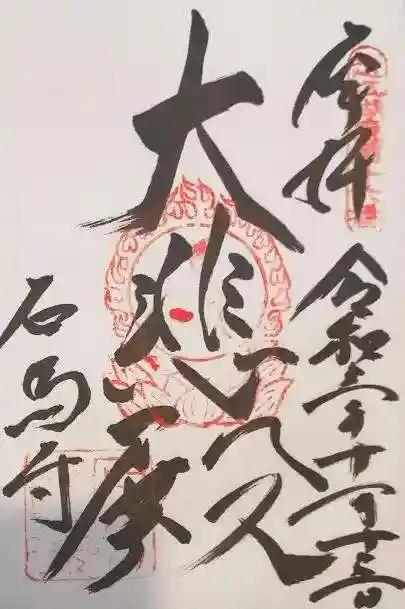 奉拝
令和三年十一月十三日
大悲殿
石馬寺